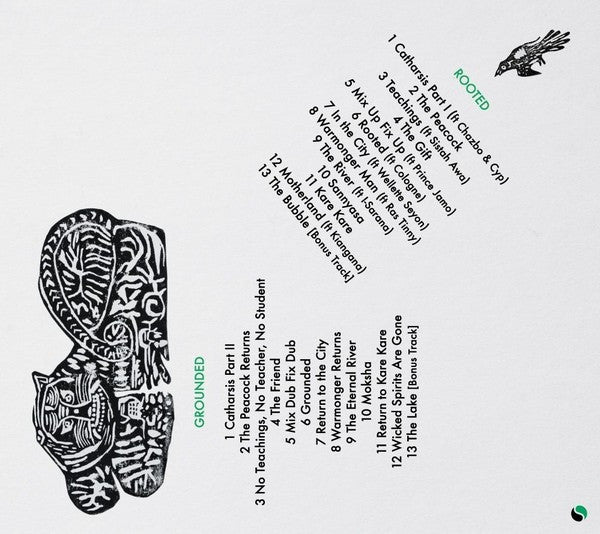 ROOTED
1 Catharsis Part I (ft Chazbo & Cyp)
2 The Peacock
3 Teachings (ft Sistah Awa)
4 The Gift
5 Mix Up Fix Up (ft Prince Jamo)
6 Rooted (ft Cologne)
7 In the City (ft Wellette Seyon)
8 Warmonger Man (ft Ras Tinny)
9 The River (ft I-Sarana)
10 Sannyasa
11 Kare Kare
12 Motherland (ft Kiangana)
13 The Bubble [Bonus Track]
GROUNDED
1 Catharsis Part II
2 The Peacock Returns
3 No Teachings, No Teacher, No Student
4 The Friend
5 Mix Dub Fix Dub
6 Grounded
7 Return to the City
8 Warmonger Returns
9 The Eternal River
10 Moksha
11 Return to Kare Kare
12 Wicked Spirits Are Gone
13 The Lake [Bonus Track]